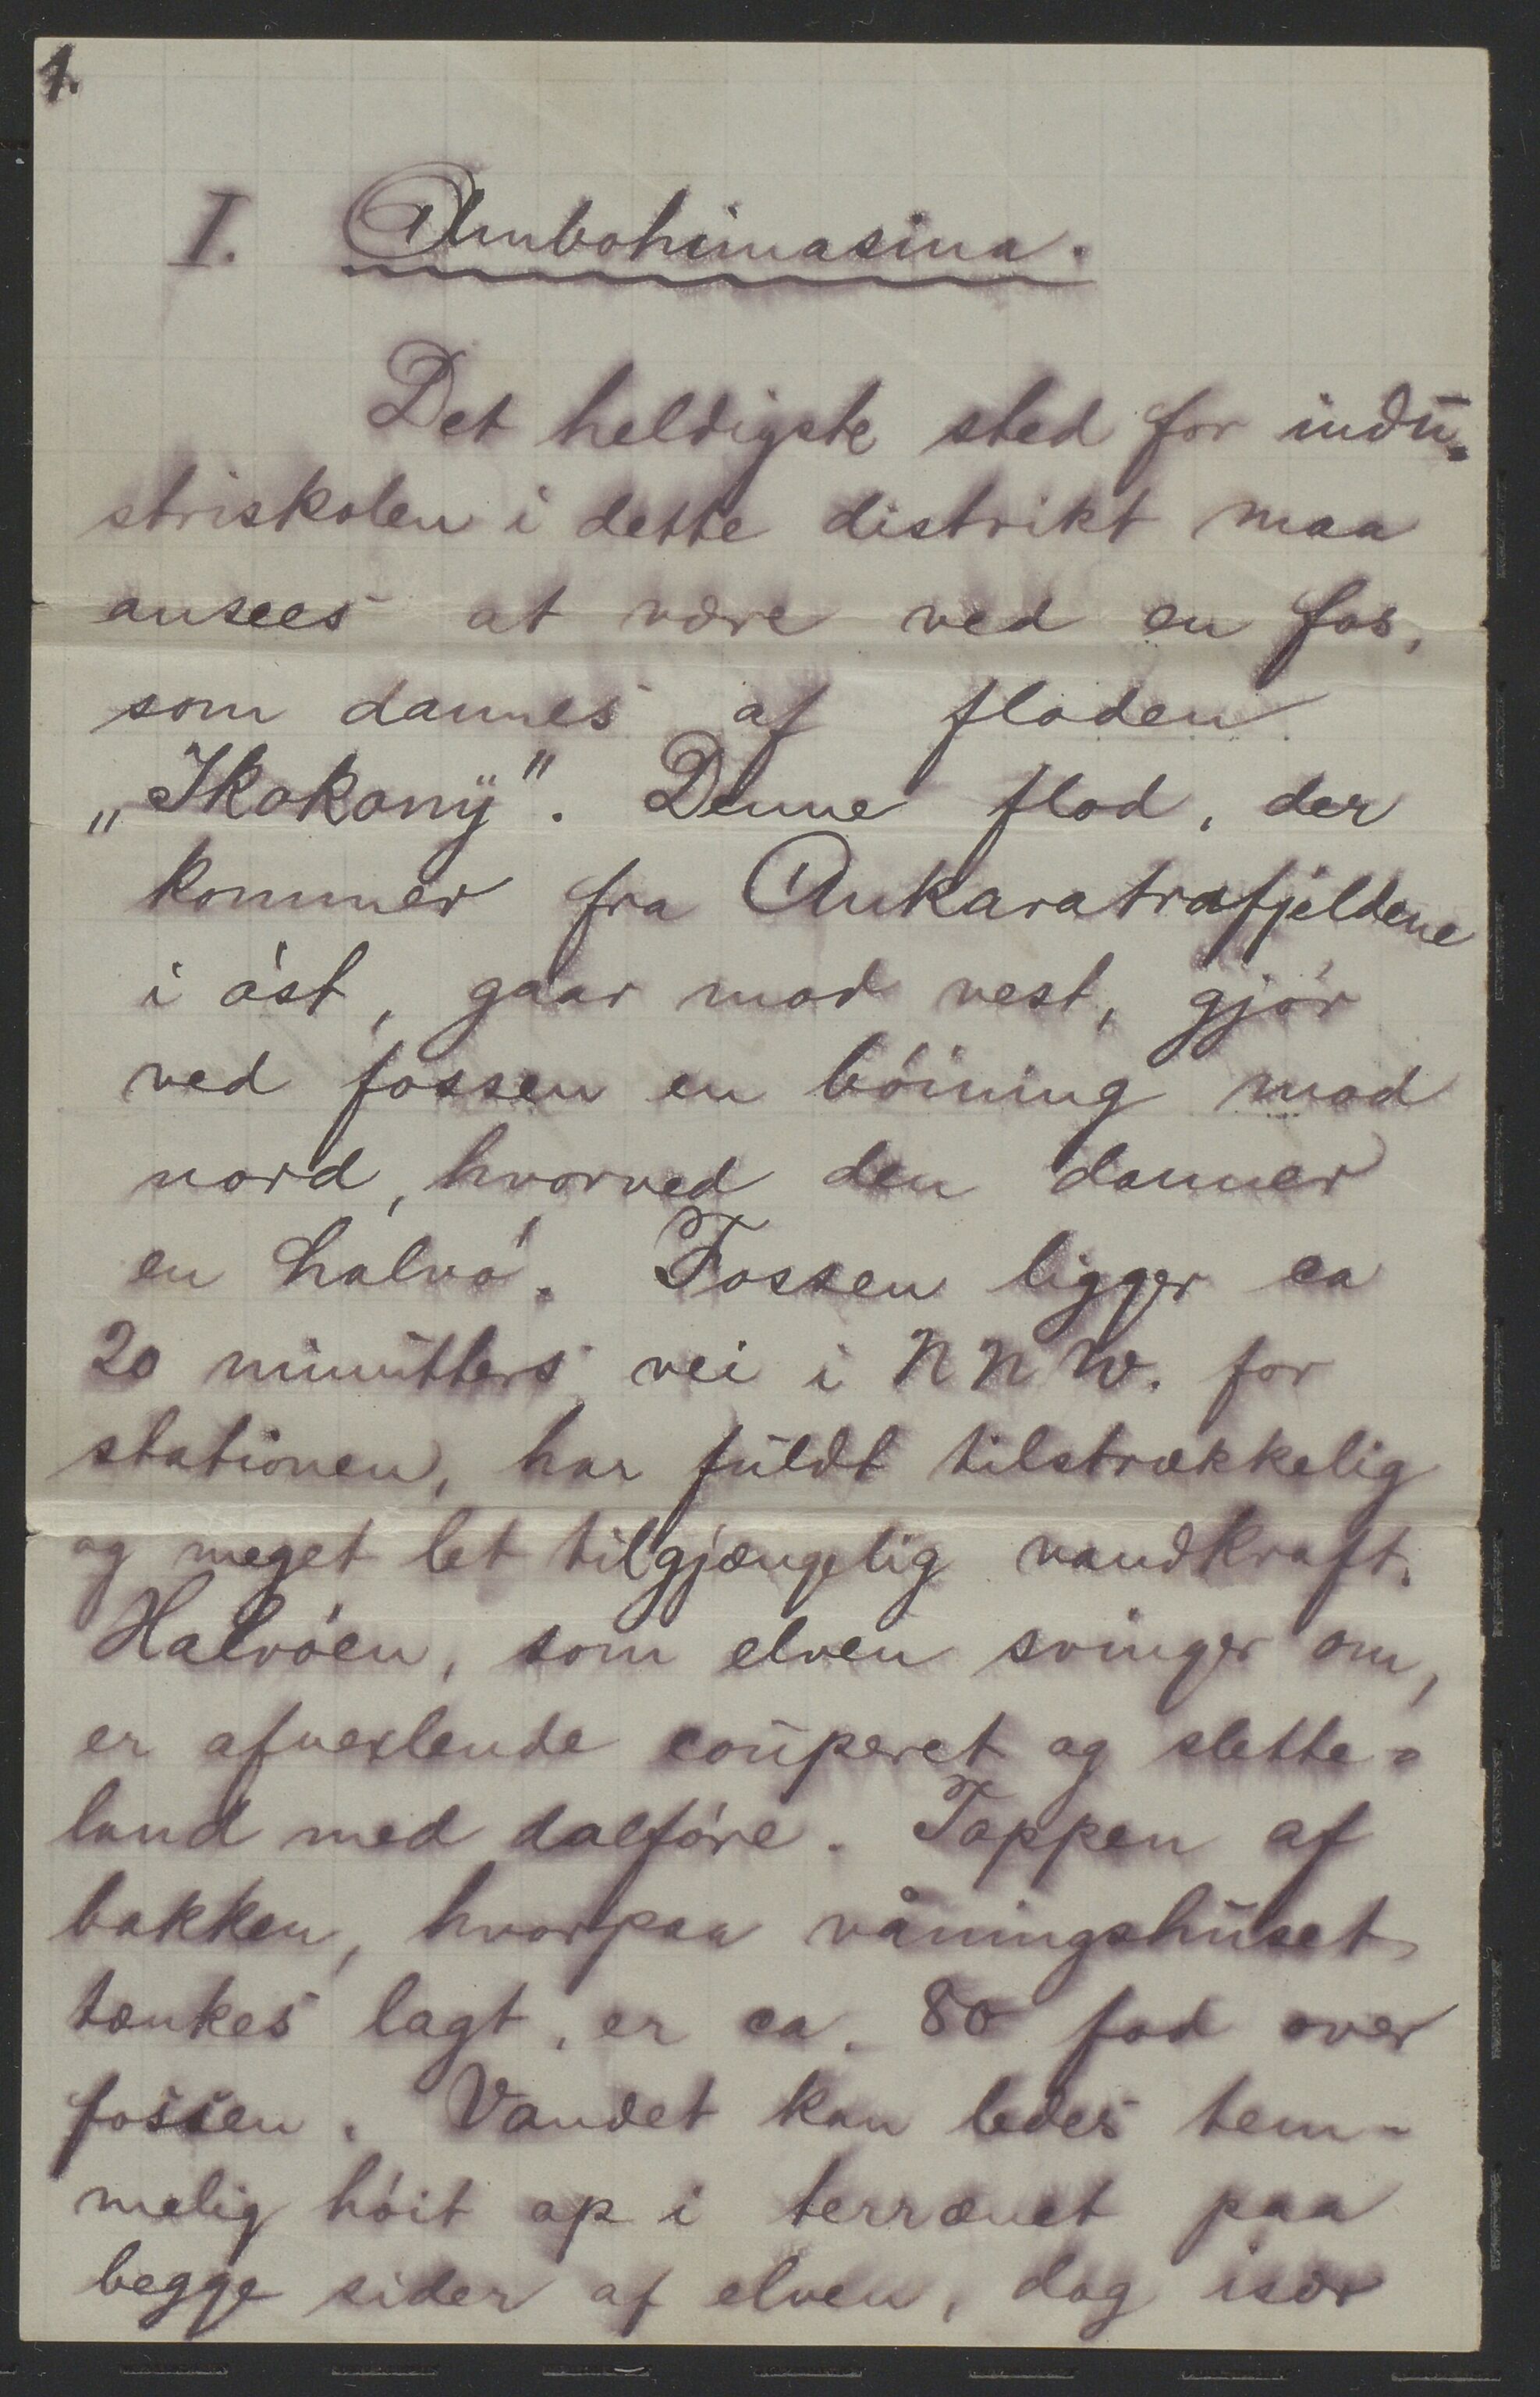 1.
I. Ambohimasina.
Det heldigste sted for indu-
striskolen i dette distrikt maa
ansees at være ved en fos,
som dannes af floden
„Ikokomy". Denne flod, der
kommer fra Ankaratrafjeldene
i óst, gaar mod vest, gjór
ved fossen en bóining mod
nord, hvorved den danner
en halvó. Fossen ligger ca
20 minutters vei i N N W. for
stationen, har fuldt tilstrækkelig
og meget let tilgjængelig vandkraft.
Halvóen, som elven svinger om,
er afvexlende couperet og slette-
land med dalfóre. Toppen af
bakken, hvorpaa våningshuset
tænkes lagt, er ca. 80 fod over
fossen. Vandet kan ledes tem-
melig hóit op i terrænet paa
begge sider af elven, dog især